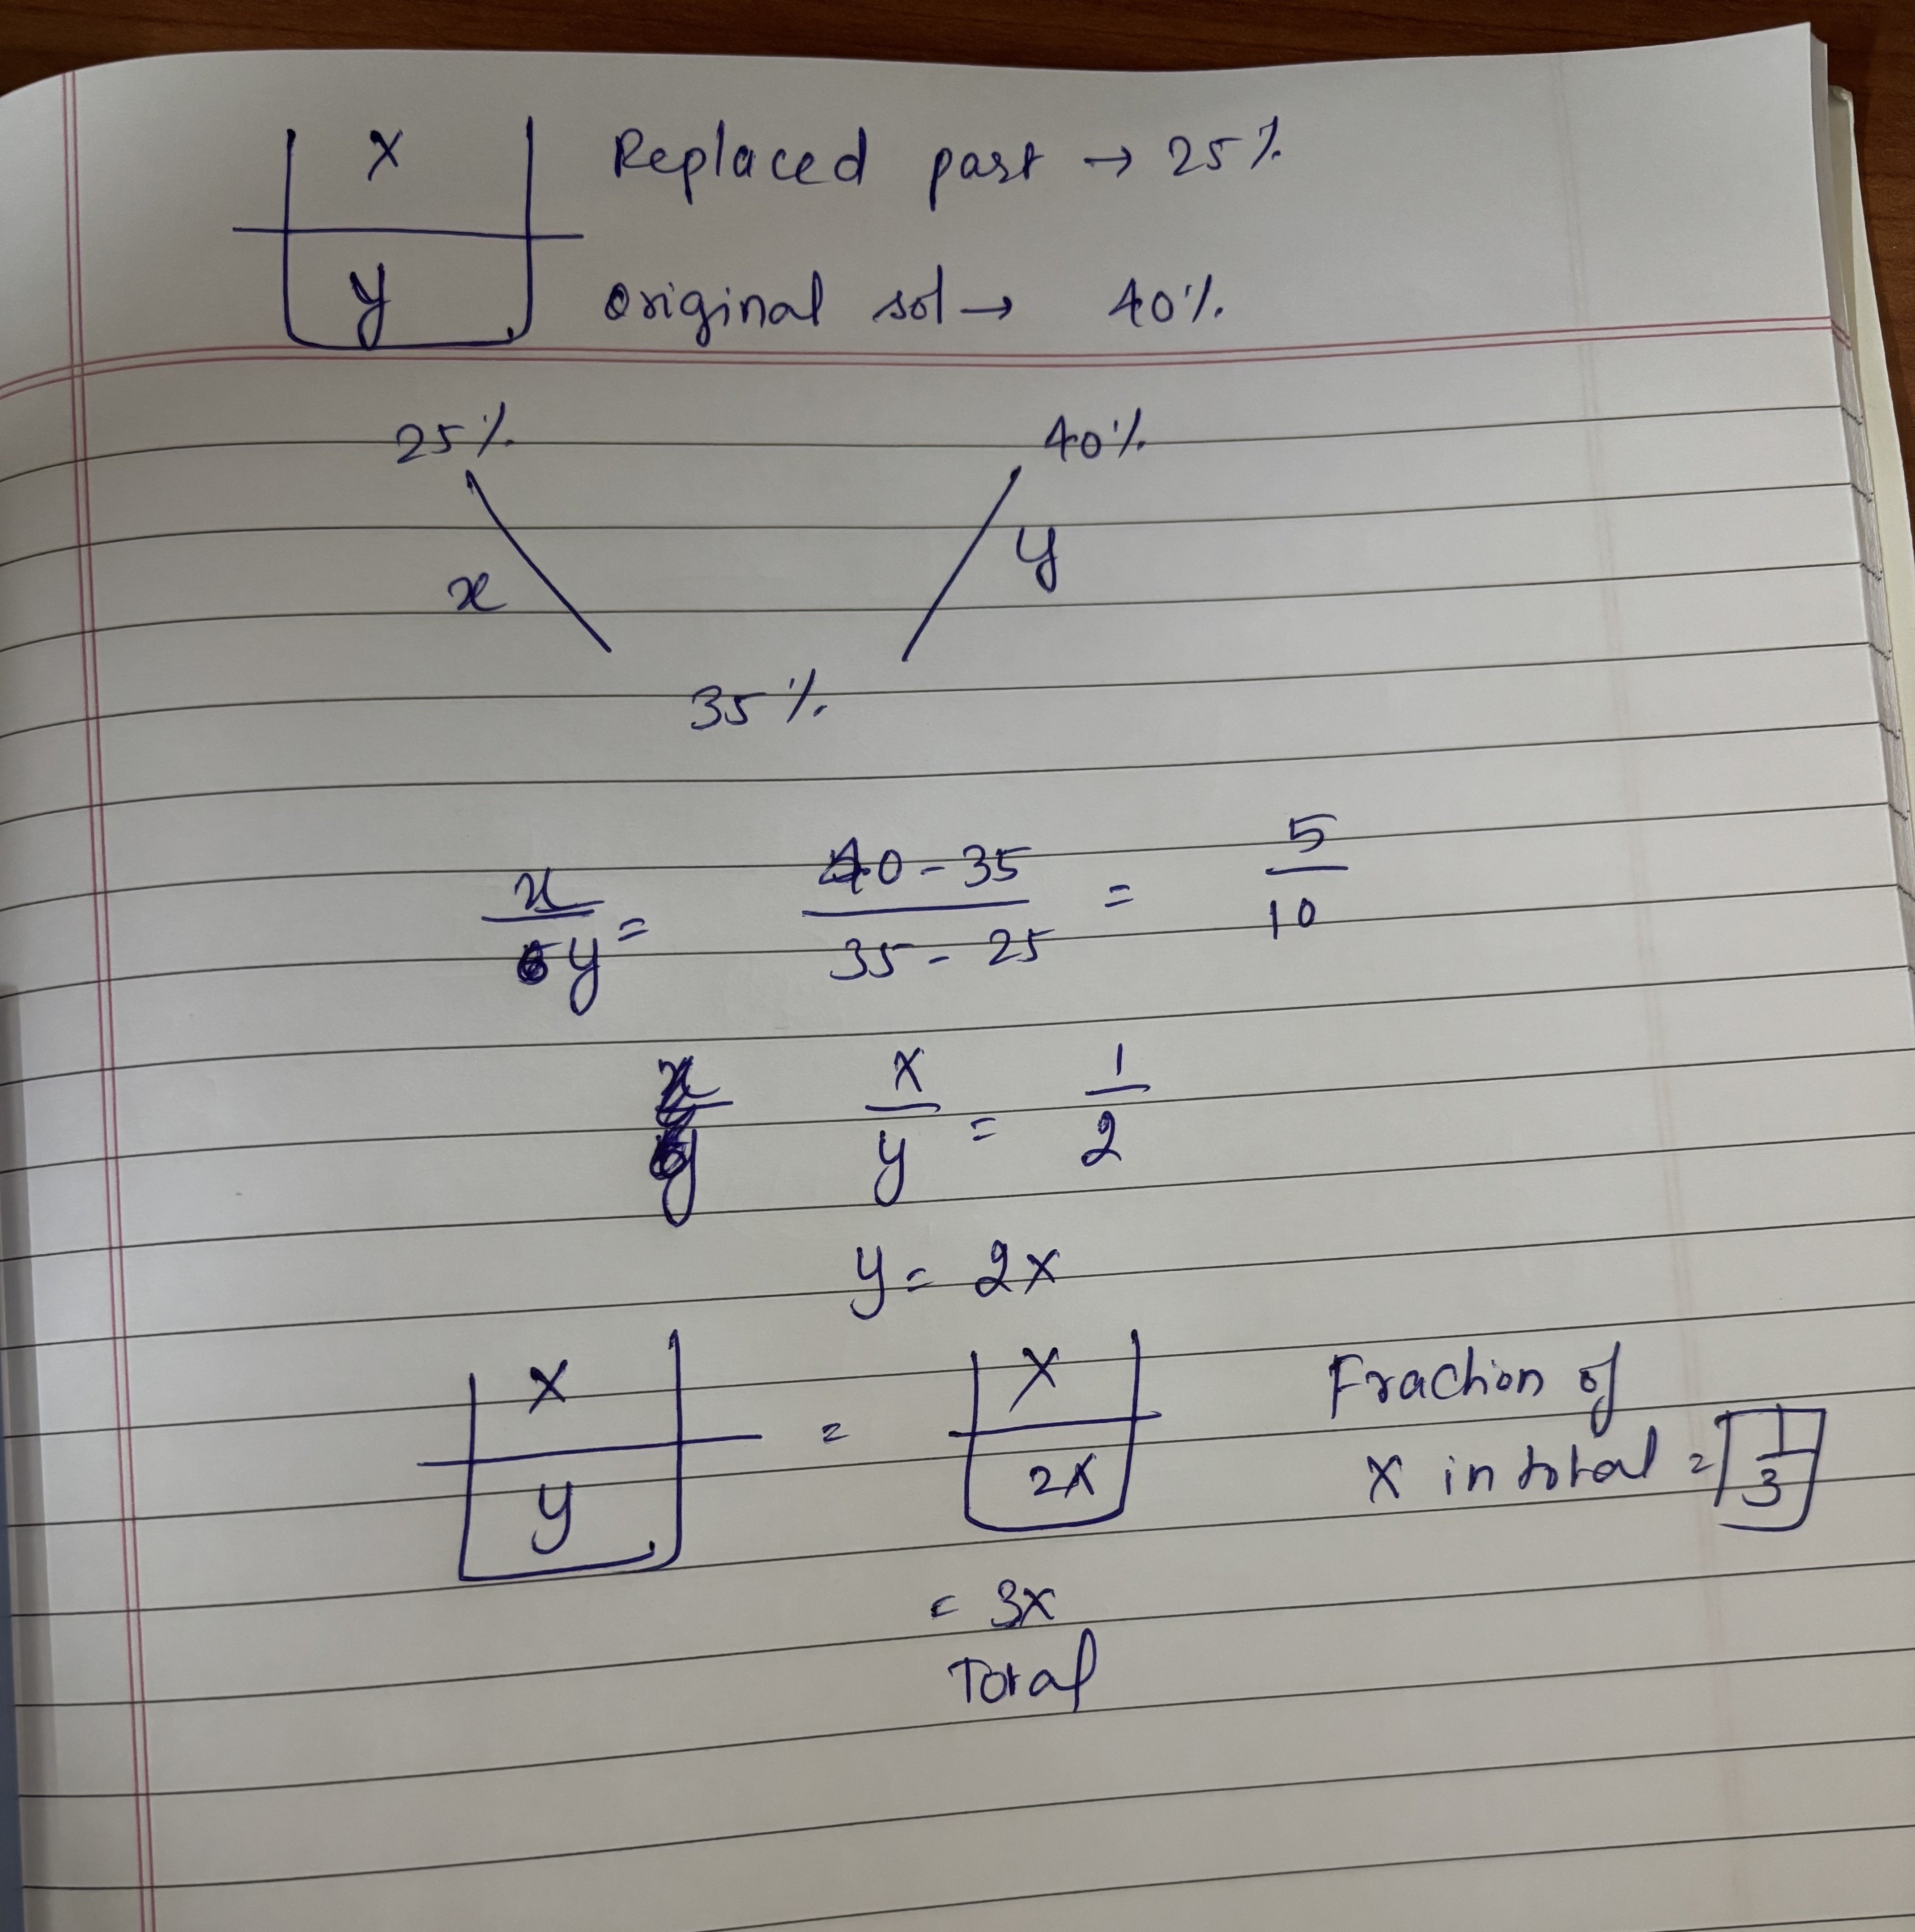 x Replaced part → 25%
y original sol → 40%
25% 40%
x y
35%
x/y = 40 - 35 / 35 - 25 = 5/10
x/y = 1/2
y = 2x
x x Fraction of
= x in total = 1/3
y 2x
= 3x
Total